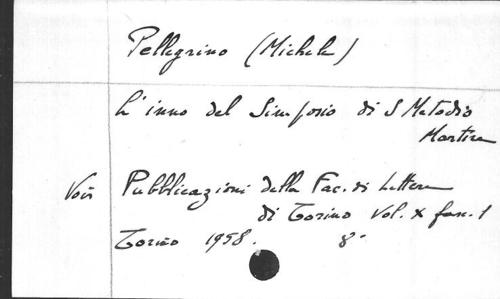 Pellegrino (Michele)
L'inno del Simposio di S Metodio
Martire
Voir Pubblicazioni della Fac. di Lettere
di Torino Vol. X fasc. 1
Torino 1958. 8°